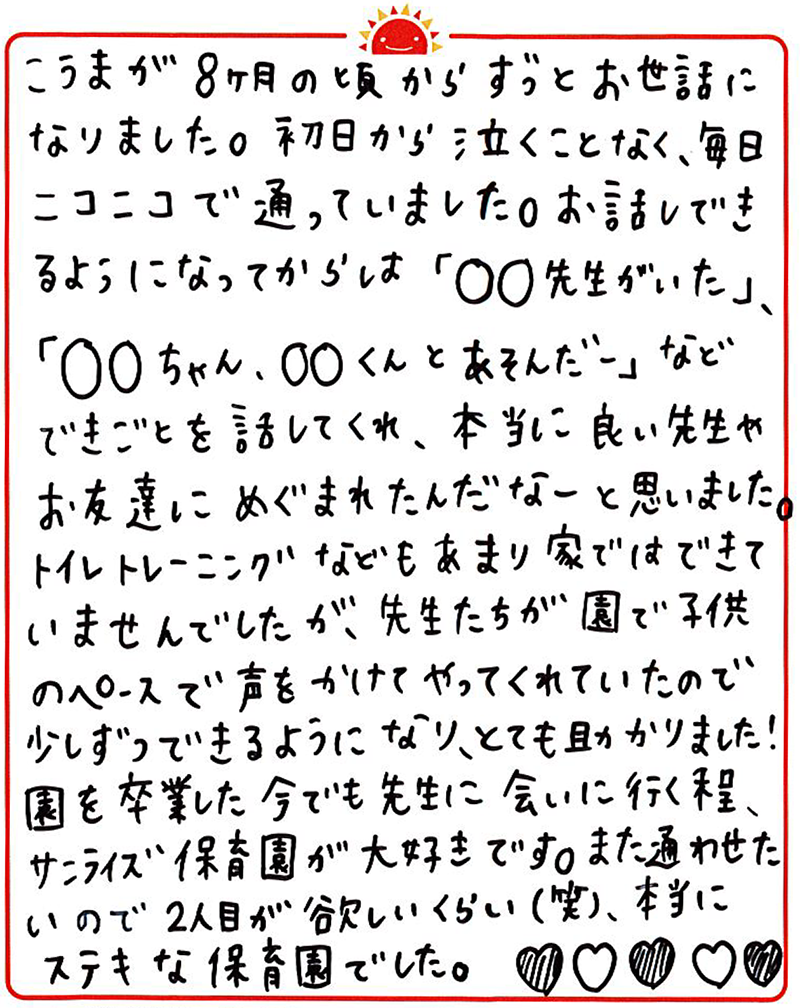 こうまが8ヶ月の頃からずっとお世話に
なりました。初日から泣くことなく、毎日
ニコニコで通っていました。お話しでき
るようになってからは「〇〇先生がいた」、
「〇〇ちゃん、〇〇くんとあそんだー」など
できごとを話してくれ、本当に良い先生や
お友達にめぐまれたんだなーと思いました。
トイレトレーニングなどもあまり家ではできて
いませんでしたが、先生たちが園で子供
のペースで声をかけてやってくれていたので
少しずつできるようになり、とても助かりました!
園を卒業した今でも先生に会いに行く程、
サンライズ保育園が大好きです。また通わせた
いので2人目が欲しいくらい(笑)、本当に
ステキな保育園でした。♥♡♥♡♥